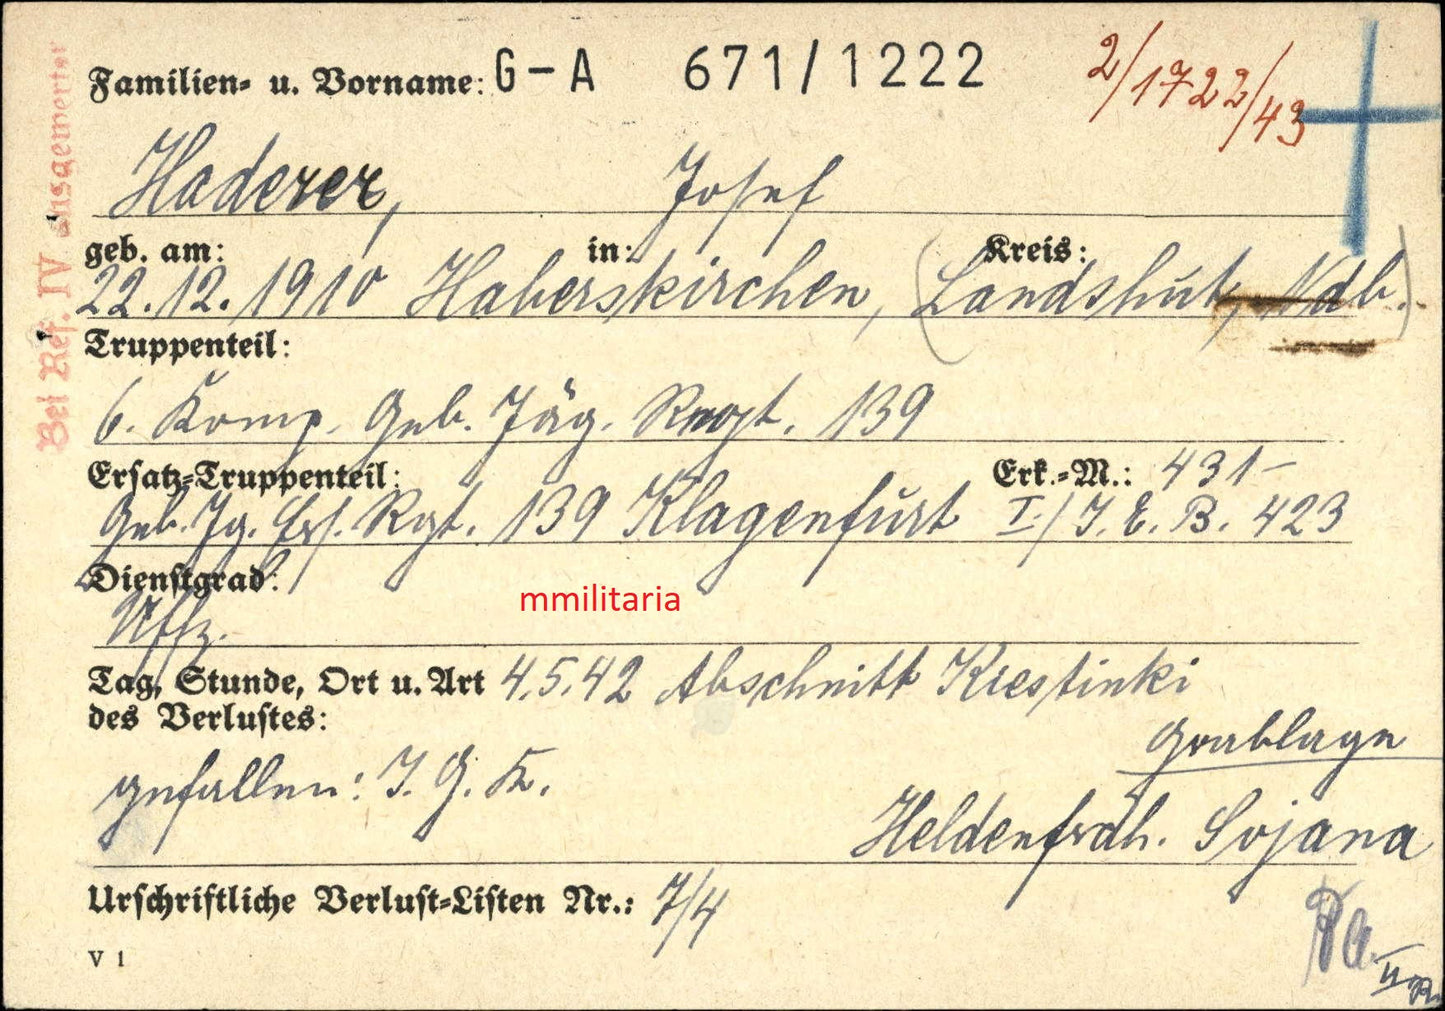 Familien- u. Vorname: G-A 671/1222 2/1722/43
Haderer, Josef
geb. am: in: Kreis:
22.12.1910 Haberskirchen, (Landshut, Ndb.)
Truppenteil:
6. Komp. Geb. Jäg. Regt. 139
Ersatz-Truppenteil: Erk.-M.: 431-
Geb. Jg. Ers. Rgt. 139 Klagenfurt I./J.E.B. 423
Dienstgrad:
Uffz.
Tag, Stunde, Ort u. Art 4.5.42 Abschnitt Kiestinki
des Verlustes:
Grablage
gefallen: I.G.K.
Heldenfrdh. Sojana
Urschriftliche Verlust-Listen Nr.: 7/4
V 1
Bei Ref. IV ausgewertet
mmilitaria